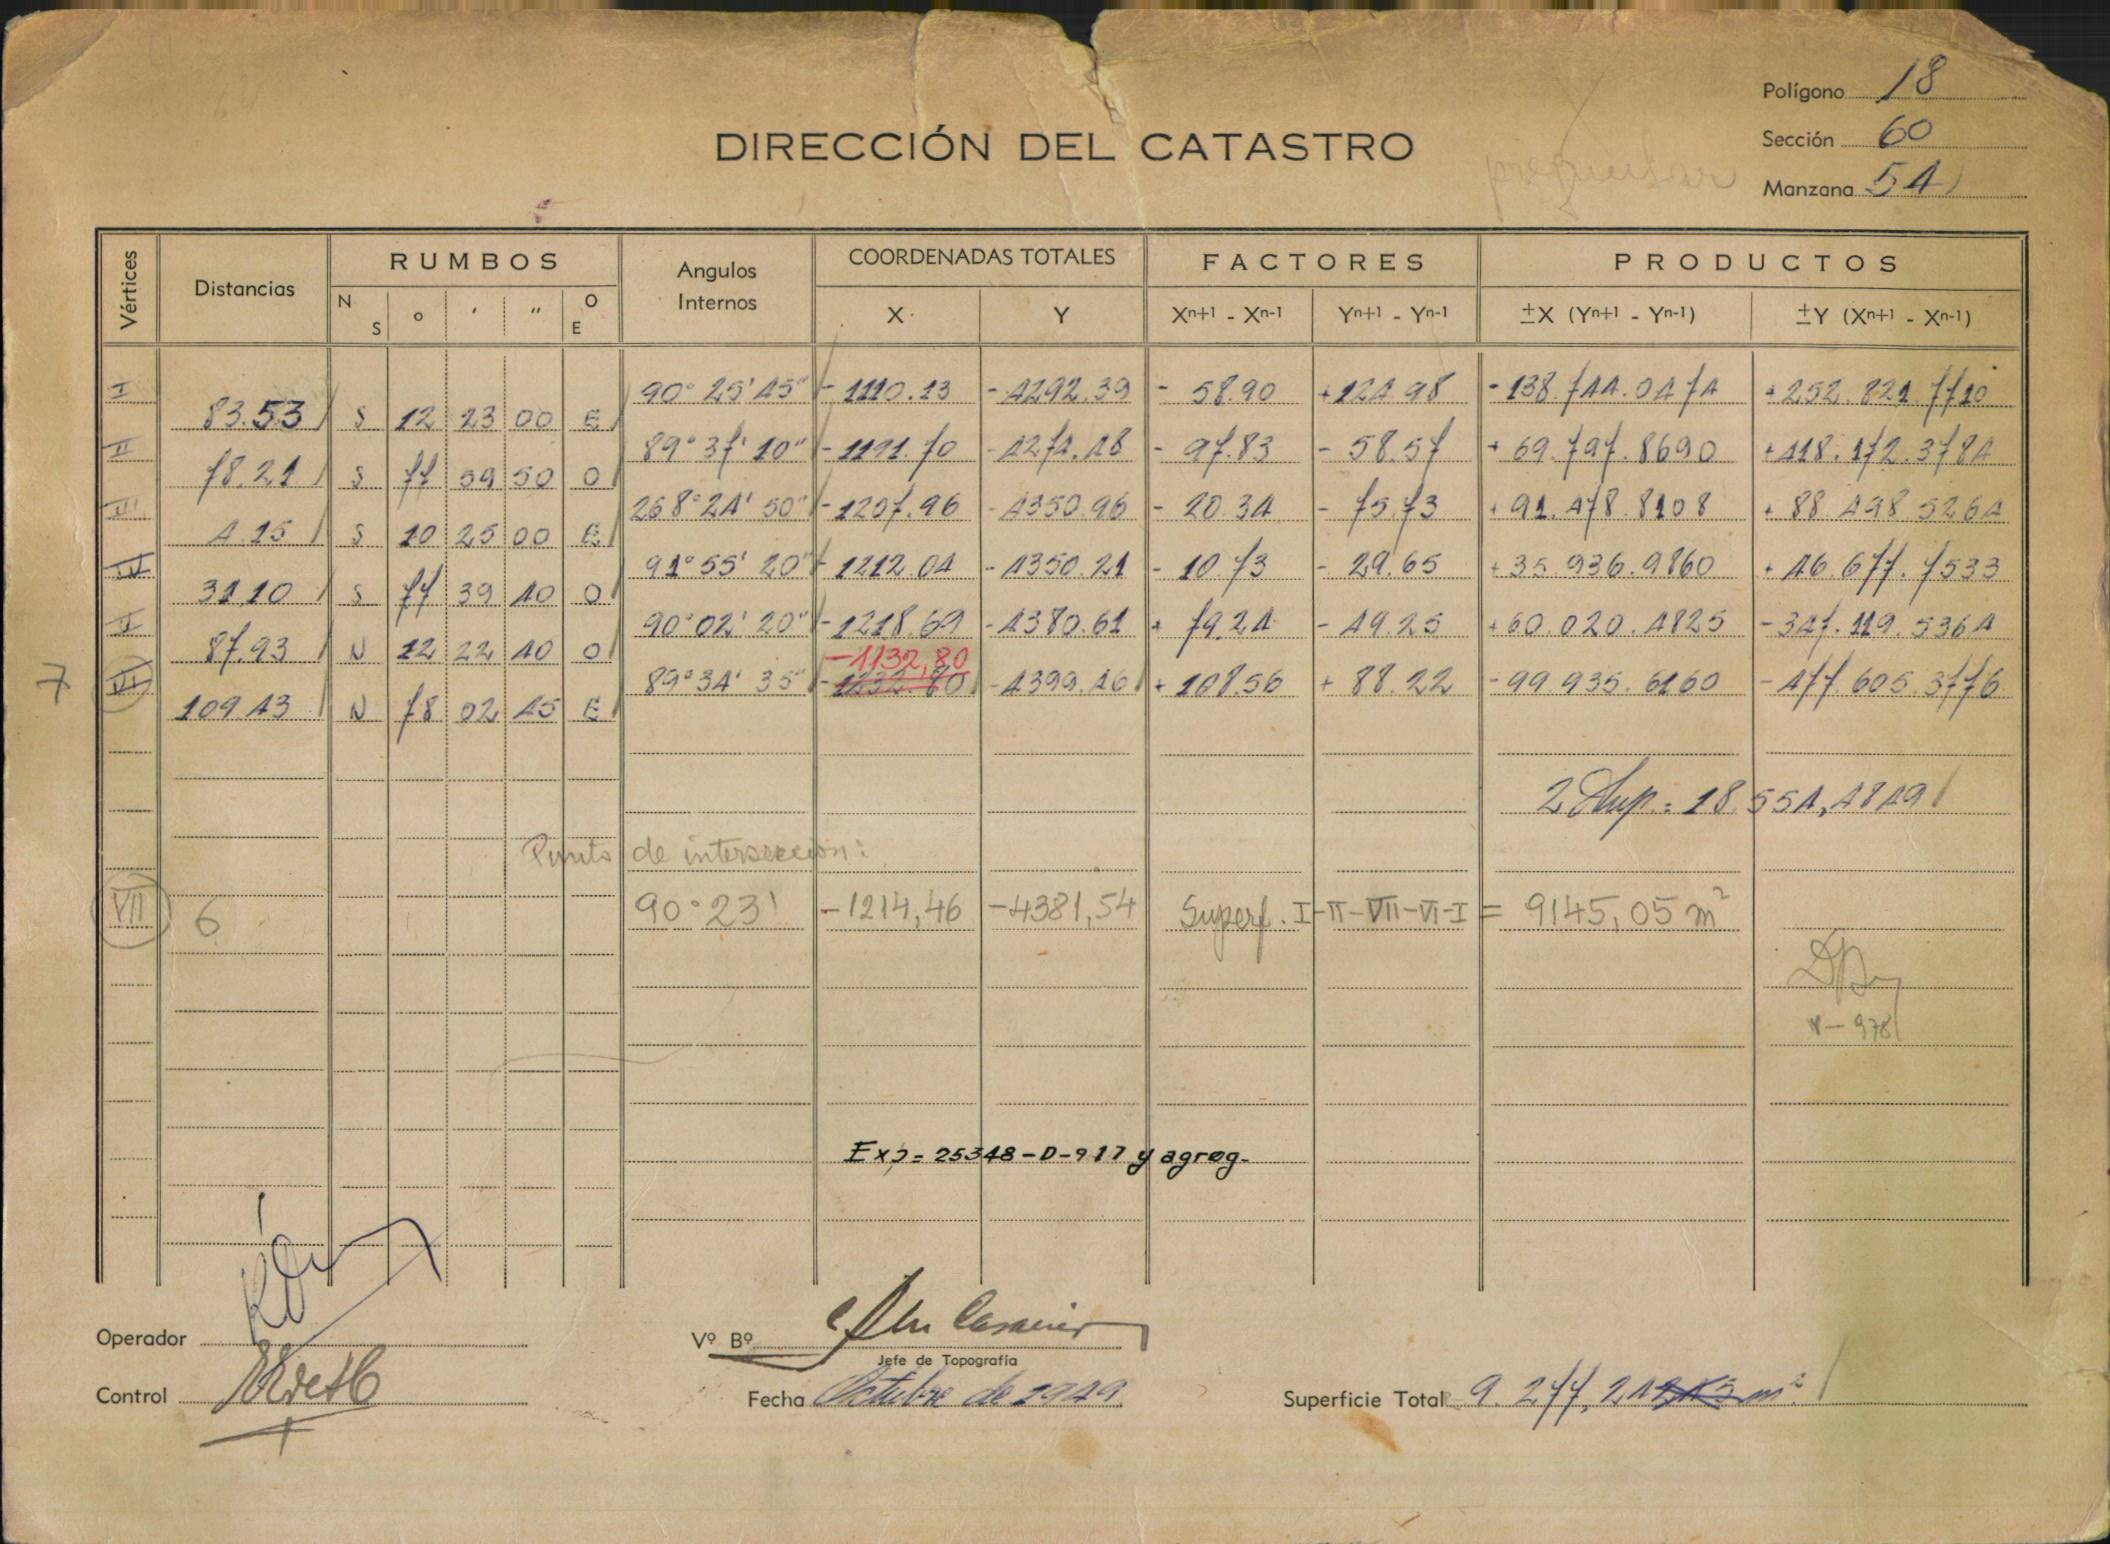 Polígono 18
DIRECCIÓN DEL CATASTRO
Sección 60
Manzana 54
Vértices Distancias RUMBOS Angulos Internos COORDENADAS TOTALES FACTORES PRODUCTOS
N S ° ' " O E X Y Xn+1 - Xn-1 Yn+1 - Yn-1 ±X (Yn+1 - Yn-1) ±Y (Xn+1 - Xn-1)
I 90° 25' 45" -1110.13 -4292.39 - 58.90 +124.98 -138.744.0474 +252.821.7710
83.53 S 12 23 00 E
II 89° 37' 10" -1191.70 -4274.48 - 97.83 - 58.57 + 69.797.8690 +418.172.3784
78.21 S 77 59 50 O
III 268° 24' 50" -1207.96 -4350.96 - 20.34 - 75.73 + 91.478.8108 + 88.498.5264
4.15 S 10 25 00 E
IV 91° 55' 20" -1212.04 -4350.21 - 10.73 - 29.65 +35.936.9860 + 46.677.7533
31.10 S 77 39 40 O
V 90° 02' 20" -1218.69 -4380.61 + 79.24 - 49.25 +60.020.4825 -347.119.5364
87.93 N 12 22 40 O
-1132,80
7 VI 89° 34' 35" -1232.80 -4399.46 + 108.56 + 88.22 -99.935.6160 -477.605.3776
109.43 N 78 02 45 E
2 Sup. = 18.554,4849
Punto de intersección:
VII 6 90°23' -1214,46 -4381,54 Superf. I-II-VII-VI-I = 9145,05 m²
Exp= 25348-D-917 y agreg.
Operador
Vº Bº
Jefe de Topografía
Control
Fecha Octubre de 1949
Superficie Total 9.277,24 m².